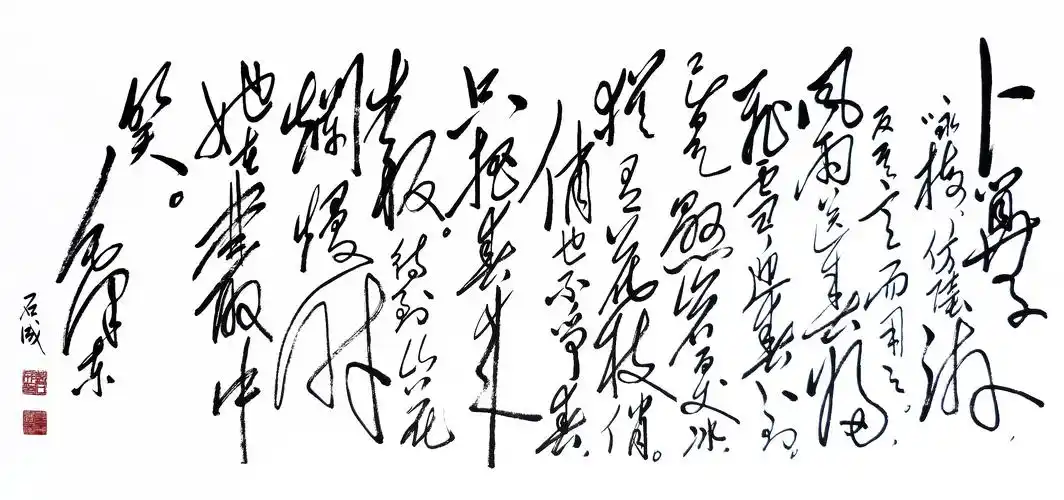 卜算子
“咏梅”仿陸游
反其意而用之。
风雨送春歸，
飛雪迎春到。
已是懸崖百丈冰，
犹有花枝俏。
俏也不争春，
只把春来
报。待到山花
爛熳时
她在叢中
笑。
毛泽东